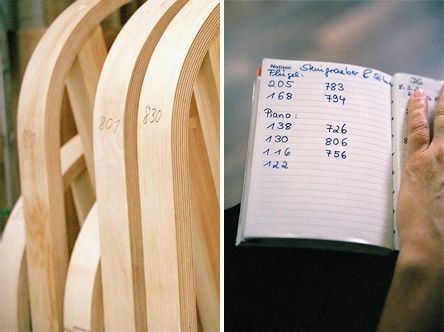 801
830
Notizen
Steingraeber &
Flügel:
205 783
168 794
Piano:
138 726
130 806
116 756
122
36